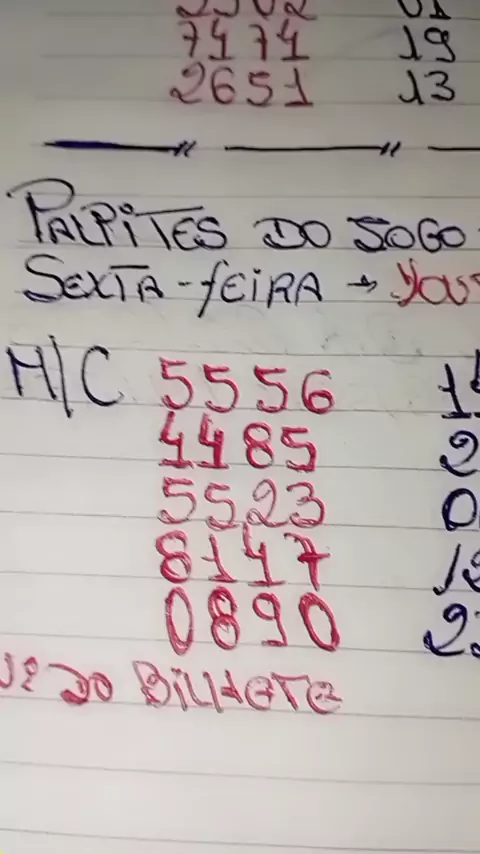 7474 19
2651 13
PALPITES DO JOGO
SEXTA-FEIRA → You
M/C 5556
4485
5523
8147
0890
Nº DO BILHETE